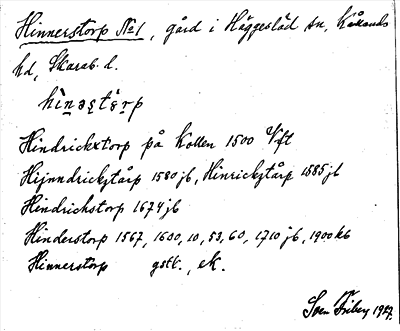 Hinnerstorp No 1, gård i Häggesled sn, Kåkinds
hd, Skarab. l.
hìnəstʹərp
Hindrickxtorp på Kollen 1500 Vft
Hijnndrickztårp 1580 jb, Hinrickztårp 1585 jb
Hindrichstorp 1674 jb
Hinderstorp 1567, 1600, 10, 53, 60, 1710 jb, 1900 kb
Hinnerstorp gstk., eK.
Sven Friberg 1927.